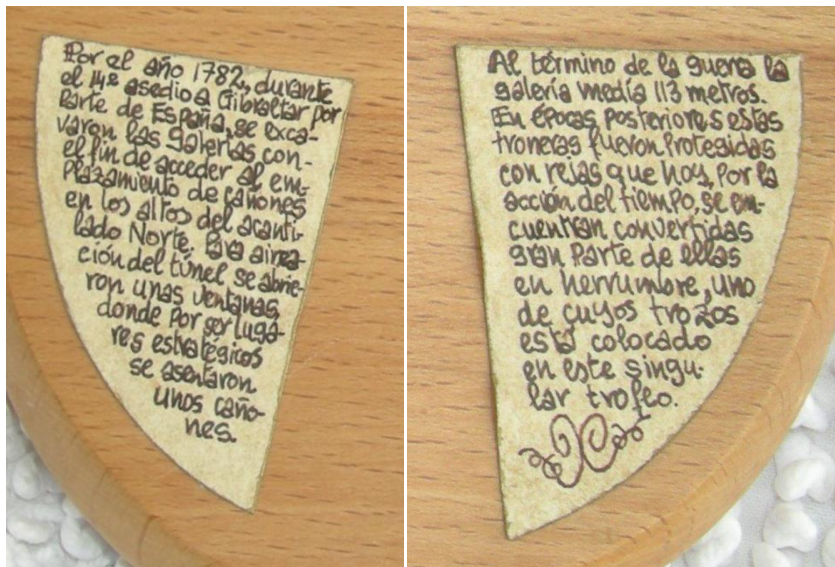 Por el año 1782, durante
el 14º asedio a Gibraltar por
parte de España, se exca-
varon las galerías con-
el fin de acceder al em-
plazamiento de cañones
en los altos del acanti-
lado Norte. Para airea-
ción del túnel se abrie-
ron unas ventanas,
donde por ser luga-
res estratégicos
se asentaron
unos caño-
nes.
Al término de la guerra la
galería medía 113 metros.
En épocas posteriores estas
troneras fueron protegidas
con rejas que hoy, por la
acción del tiempo, se en-
cuentran convertidas
gran parte de ellas
en herrumbre, uno
de cuyos trozos
está colocado
en este singu-
lar trofeo.